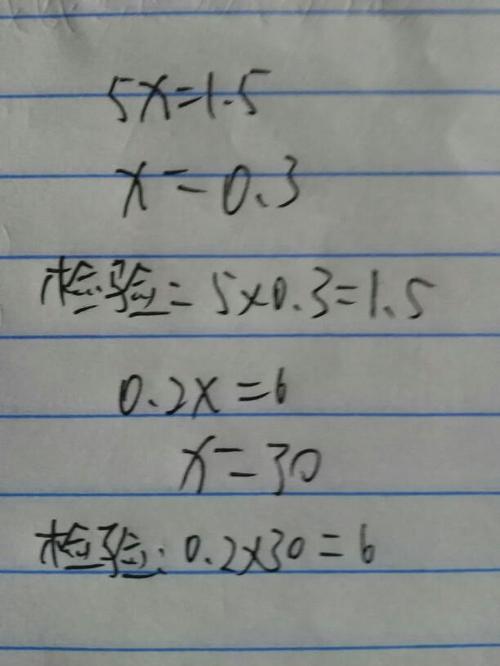 5x=1.5
x=0.3
检验=5×0.3=1.5
0.2x=6
x=30
检验:0.2×30=6